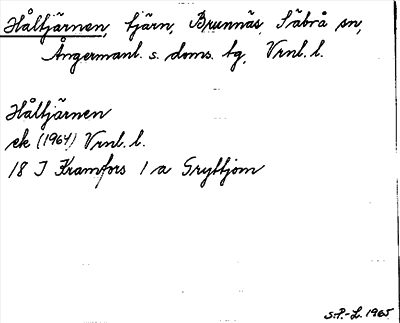 Håltjärnen, tjärn, Brunnäs, Säbrå sn,
Ångermanl. s. doms. tg, Vrnl. l.
Håltjärnen
ek (1964) Vrnl. l.
18 I Kramfors 1 a Gryttjom
S.P.-L. 1965